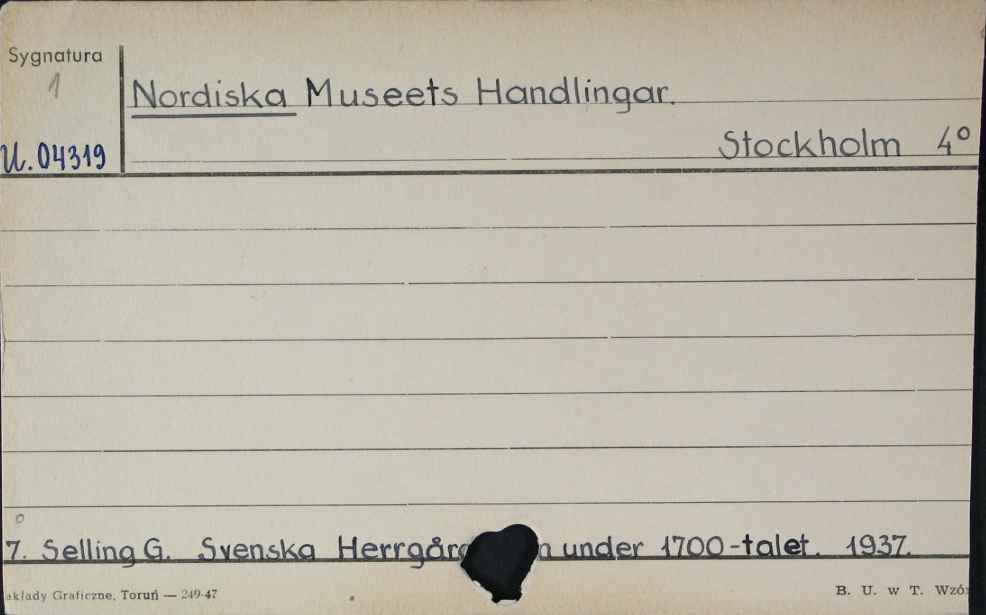 Sygnatura
1
U.04319
Nordiska Museets Handlingar.
Stockholm 4°
7. Selling G. Svenska under 1700-talet. 1937.
Graficzne, Toruń — 249-47
B. U. w T.